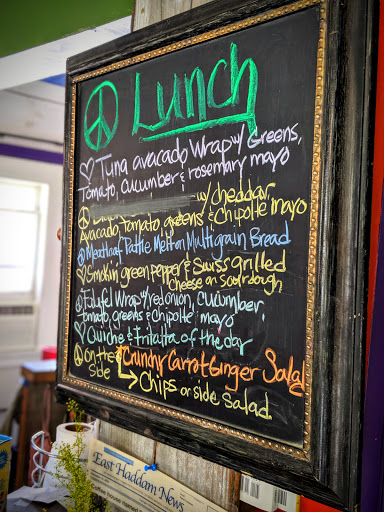 Lunch
Tuna avacado Wrap w/ Greens,
Tomato, cucumber & rosemary mayo
w/ cheddar
Avacado, Tomato, greens & Chipotle mayo
Meatloaf Pattie Melt on Multigrain Bread
Smokin green pepper & Swiss grilled
Cheese on Sourdough
Falafel Wrap w/ red onion, cucumber,
tomato, greens & chipotle mayo
Quiche & fritatta of the day
On the Crunchy Carrot Ginger Salad
Side
Chips or side salad
East Haddam News